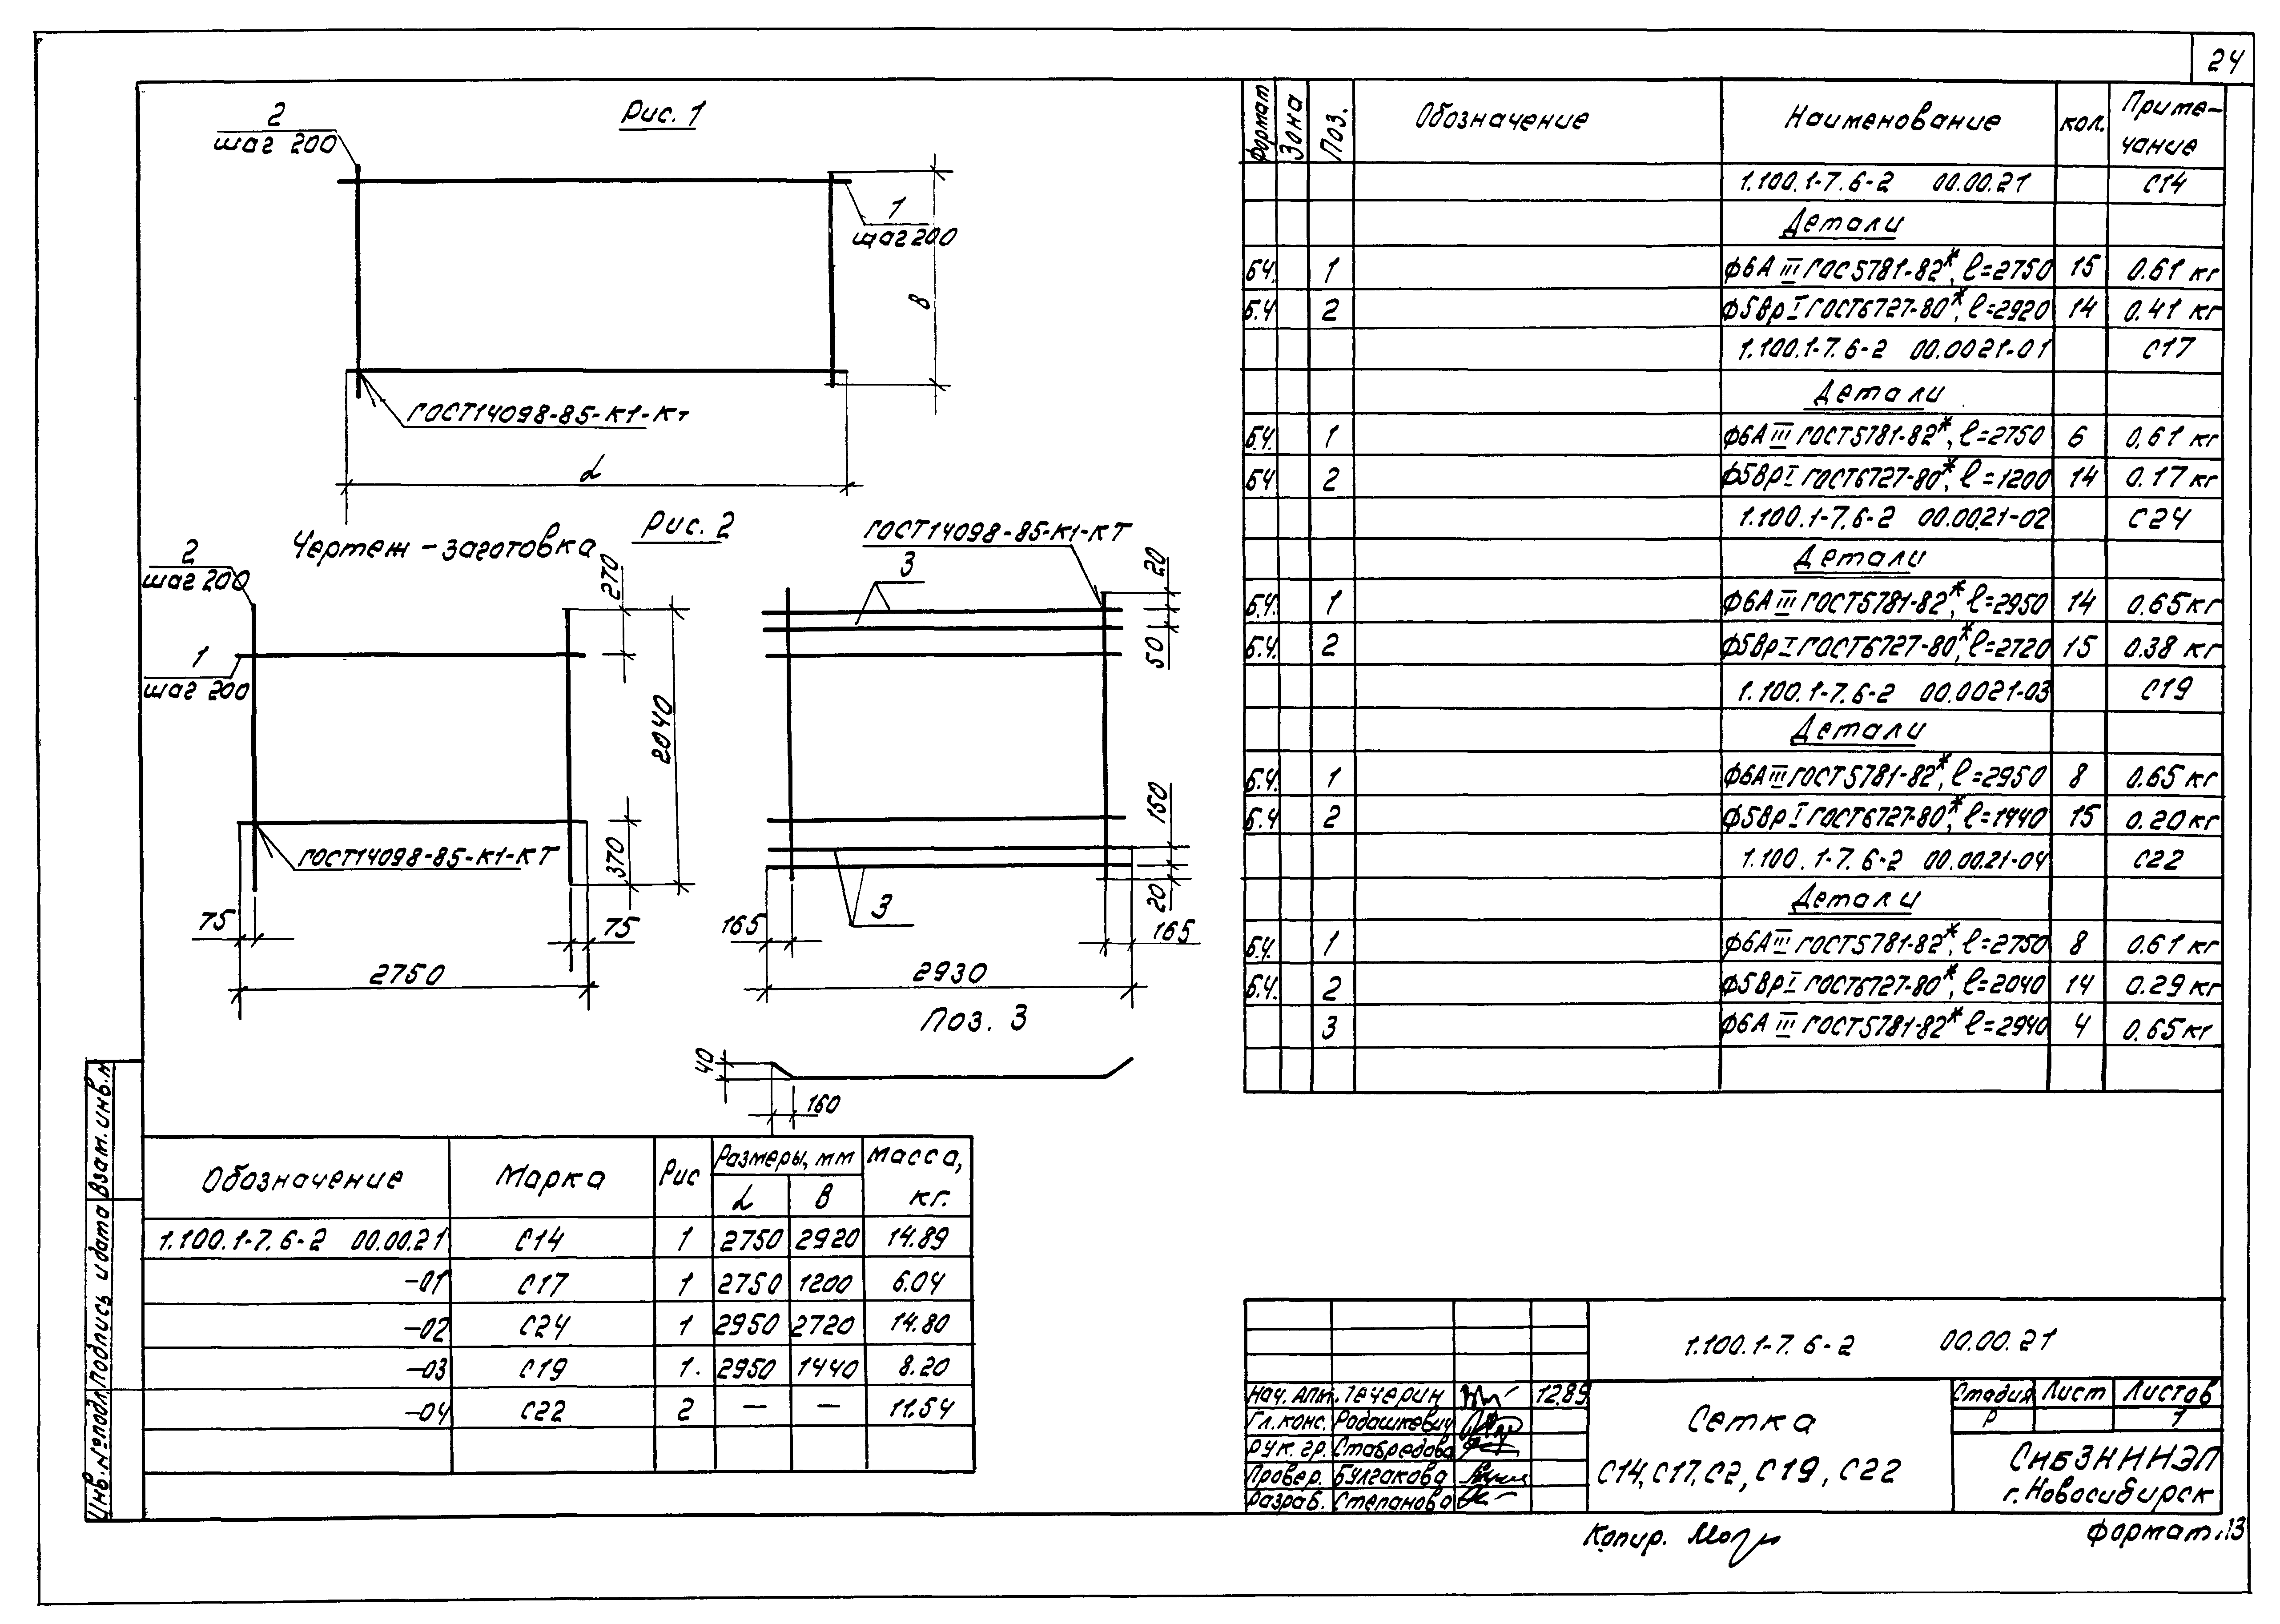 24
Рис. 1
2
шаг 200
1
шаг 200
В
ГОСТ14098-85-К1-Кт
L
Рис. 2
Чертеж-заготовка
2
шаг 200
1
шаг 200
270
2040
370
ГОСТ14098-85-К1-КТ
75
75
2750
ГОСТ14098-85-К1-КТ
3
20
50
150
20
3
165
165
2930
Поз. 3
40
160
Формат Зона Поз. Обозначение Наименование кол. Приме-чание
1.100.1-7.6-2 00.00.21 С14
Детали
БЧ. 1 ф6АIII ГОС5781-82*, ℓ=2750 15 0.61 кг
Б.Ч 2 ф5ВрI ГОСТ6727-80*, ℓ=2920 14 0.41 кг
1.100.1-7.6-2 00.0021-01 С17
Детали
Б.Ч. 1 ф6АIII ГОСТ5781-82*, ℓ=2750 6 0,61 кг
БЧ 2 ф5ВрI ГОСТ6727-80*, ℓ=1200 14 0.17 кг
1.100.1-7.6-2 00.00.21-02 С24
Детали
Б.Ч. 1 ф6АIII ГОСТ5781-82*, ℓ=2950 14 0.65кг
Б.Ч. 2 ф5ВрI ГОСТ6727-80*, ℓ=2720 15 0.38 кг
1.100.1-7.6-2 00.0021-03 С19
Детали
Б.Ч. 1 ф6АIII ГОСТ5781-82*, ℓ=2950 8 0.65 кг
Б.Ч 2 ф5ВрI ГОСТ6727-80*, ℓ=1440 15 0.20 кг
1.100.1-7.6-2 00.00.21-04 С22
Детали
Б.Ч. 1 ф6АIII ГОСТ5781-82*, ℓ=2750 8 0.61 кг
Б.Ч. 2 ф5ВрI ГОСТ6727-80*, ℓ=2040 14 0.29 кг
3 ф6АIII ГОСТ5781-82* ℓ=2940 4 0.65 кг
Обозначение Марка Рис Размеры, мм Масса, кг.
L В
1.100.1-7.6-2 00.00.21 С14 1 2750 2920 14.89
-01 С17 1 2750 1200 6.04
-02 С24 1 2950 2720 14.80
-03 С19 1. 2950 1440 8.20
-04 С22 2 — — 11.54
Инв.№подл. Подпись и дата Взам.инв.н
1.100.1-7.6-2 00.00.21
Нач. АПМ. Печерин 12.89
Гл.конс. Родашкевич
Рук. гр. Стабредова
Провер. Булгакова
Разраб. Степанова
Сетка
С14, С17, С2, С19, С22
Стадия Лист Листов
Р 1
СибЗНИИЭП
г. Новосибирск
Копир.
Формат